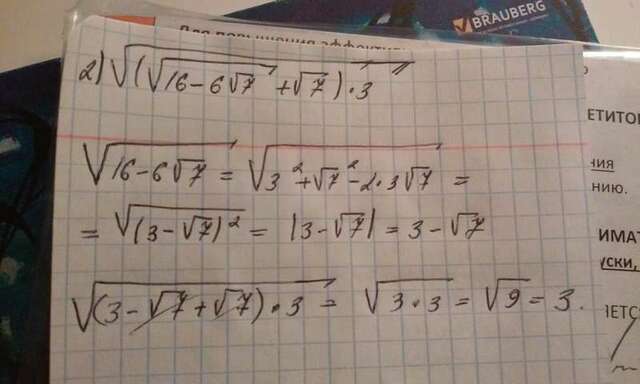 BRAUBERG
Для повышения эффекти
2) √((√(16-6√7) + √7)·3)
√(16-6√7) = √(3² + √7² - 2·3√7) =
= √((3-√7)²) = |3-√7| = 3-√7
√((3-√7+√7)·3) = √(3·3) = √9 = 3.
ЕТИТОР
ния
нию.
ИМАТ
уски,
ЧЕТС